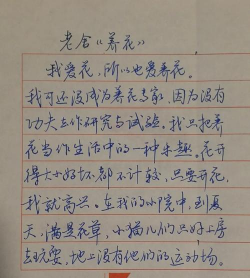 老舍《养花》
我爱花，所以也爱养花。
我可还没成为养花专家，因为没有
功夫去作研究与试验。我只把养
花当作生活中的一种乐趣。花开
得大小好坏都不计较，只要开花，
我就高兴。在我的小院中，到夏
天，满是花草，小猫儿们只好上房
去玩耍，地上没有他们的运动场。